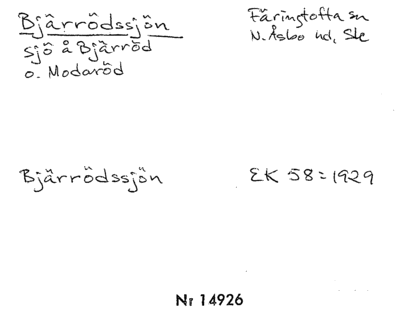 Bjärrödssjön
sjö å Bjärröd
o. Modaröd
Färingtofta sn
N. Åsbo hd, Ske
Bjärrödssjön
EK 58 = 1929
Nr 14926